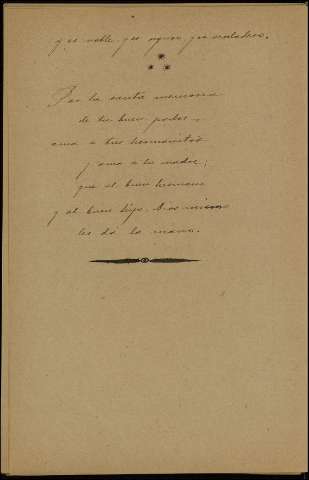 y es noble y es
Por la santa memoria
de tu buen padre,
ama a tus hermanitos
y ama a tu madre;
que al buen hermano
y al buen hijo, Dios mismo
les dá la mano.